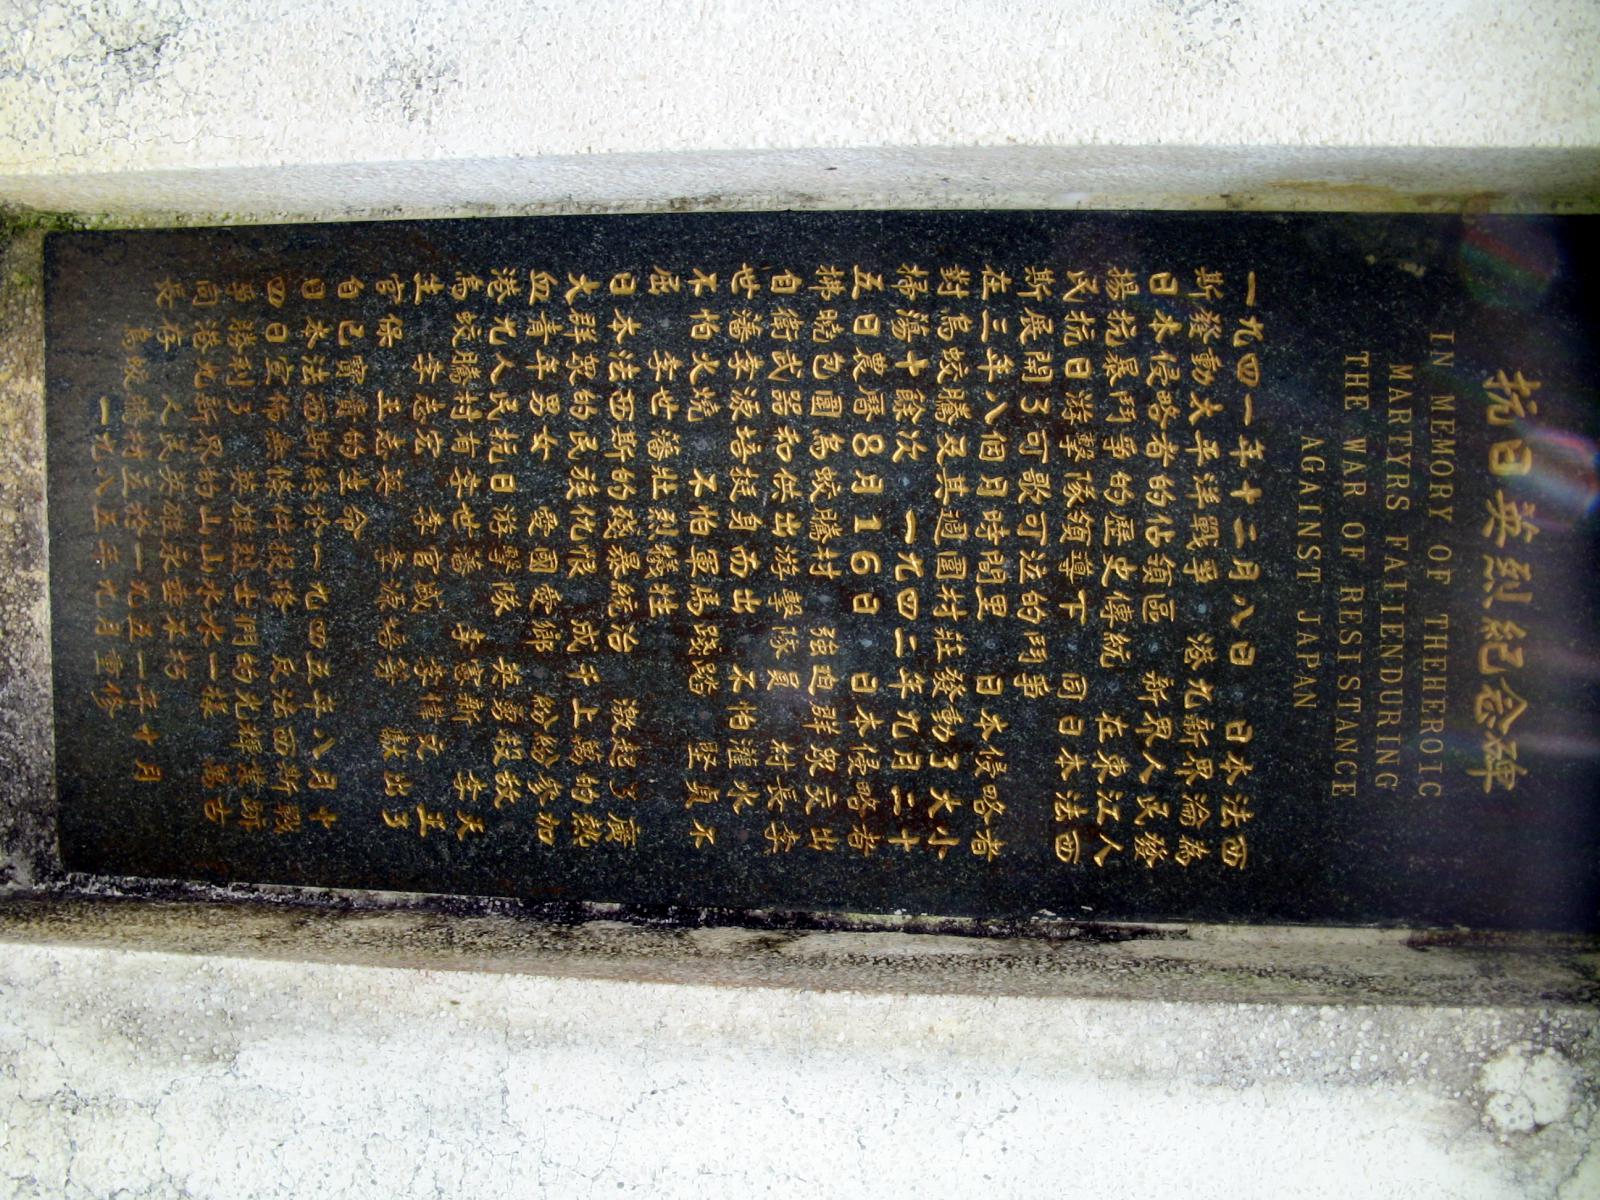 抗日英烈紀念碑
IN MEMORY OF THEHEROIC
MARTYRS FALIENDURING
THE WAR OF RESISTANCE
AGAINST JAPAN
一九四一年十二月八日 日本法西
斯發動太平洋戰爭 港九新界淪為
日本侵略者的佔領區 新界人民發
揚抗暴鬥爭的歷史傳統 在東江人
民抗日游擊隊領導下 同日本法西
斯展開了可歌可泣的鬥爭
在三年八個月時間里 日本侵略者
對烏蛟騰及其週圍村莊發動了大小
掃蕩十餘次 一九四二年九月二十
五日農曆8月16日 日本侵略者
拂曉包圍烏蛟騰村 強迫群眾交出
自衛武器和供出游擊隊員 村長李
世藩李源培挺身而出 不怕灌水
不怕火燒 不怕軍馬踐踏 堅貞不
屈 李世藩壯烈犧牲
日本法西斯的殘暴統治 激起了廣
大群眾的民族仇恨 成千上萬的熱
血青年男女 愛國愛鄉 紛紛參加
港九人民抗日游擊隊 英勇殺敵
烏蛟騰村有李世藩 李憲新 李天
生 李志宏 李官盛 李偉文 王
官保 王志英 李源培等 獻出了
自己寶貴的生命
日本法西斯終於一九四五年八月十
四日宣佈無條件投降 反法西斯戰
爭勝利了 英雄烈士們的光輝業跡
同港九新界的山山水水一樣 萬古
長存 人民英雄永垂不朽
烏蛟騰村立於一九五一年十月
一九八五年九月重修